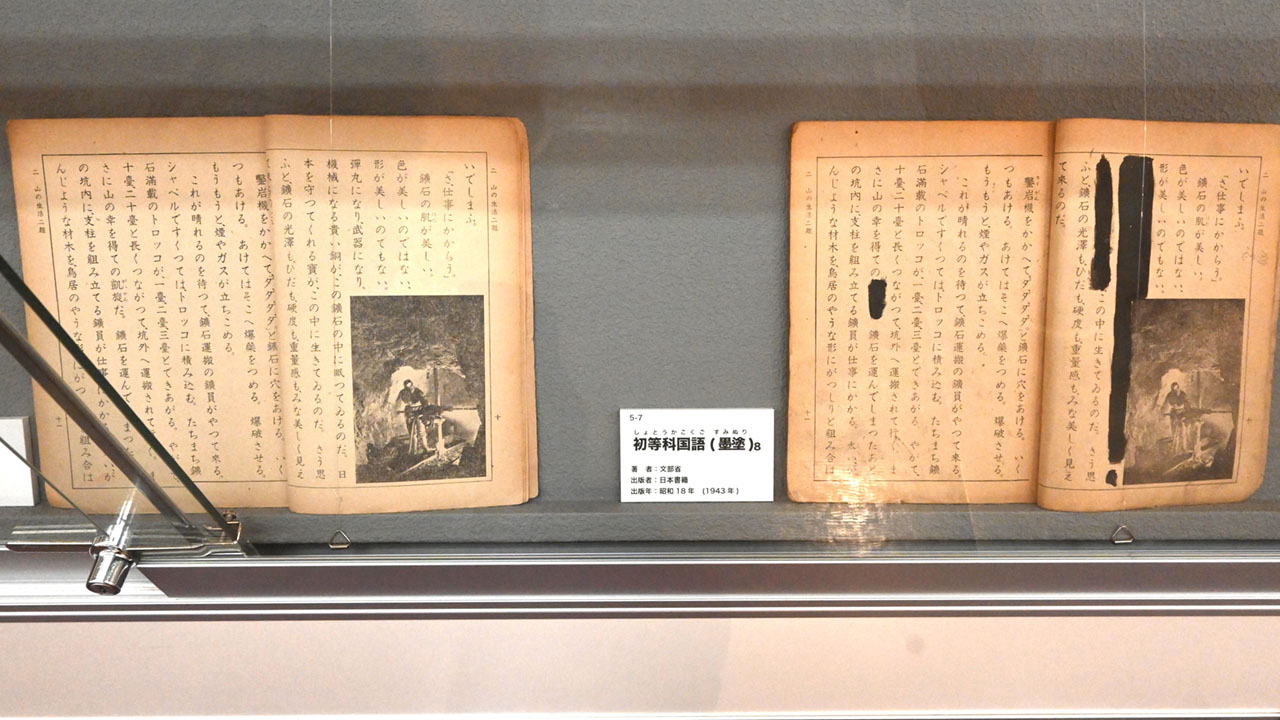 二 山の生活二題
いでしまふ。
「さ、仕事にかからう。」
鑛石の肌が美しい。
色が美しいのではない。
形が美しいのでもない。
彈丸になり、武器になり、
機械になる貴い銅が、この鑛石の中に眠つてゐるのだ。日
本を守つてくれる寶が、この中に生きてゐるのだ。さう思
ふと、鑛石の光澤も、ひだも、硬度も、重量感も、みな美しく見え
十
鑿岩機をかかへてダダダダと鑛石に穴をあける。いく
つもあける。あけてはそこへ爆藥をつめる。爆破させる。
もうもうと煙やガスが立ちこめる。
これが晴れるのを待つて、鑛石運搬の鑛員がやつて來る。
シャベルですくつては、トロッコに積み込む。たちまち鑛
石滿載のトロッコが、一臺二臺三臺とできあがる。やが
十臺二十臺と長くつながつて、坑外へ運搬されて
さに山の幸を得ての凱旋だ。鑛石を運んで
の坑内に、支柱を組み立てる鑛員が仕事にかか
んじような材木を、鳥居のやうな
組み合は
二 山の生活二題
十一
5-7
しょとうかこくご すみぬり
初等科国語(墨塗)8
著 者:文部省
出版者:日本書籍
出版年:昭和18年 (1943年)
二 山の生活二題
いでしまふ。
「さ、仕事にかからう。」
鑛石の肌が美しい。
色が美しいのではない。
形が美しいのでもない。
この中に生きてゐるのだ。さう思
ふと、鑛石の光澤も、ひだも、硬度も、重量感も、みな美しく見え
て來るのだ。
十
鑿岩機をかかへてダダダダと鑛石に穴をあける。いく
つもあける。あけてはそこへ爆藥をつめる。爆破させる。
もうもうと煙やガスが立ちこめる。
これが晴れるのを待つて、鑛石運搬の鑛員がやつて來る。
シャベルですくつては、トロッコに積み込む。たちまち鑛
石滿載のトロッコが、一臺二臺三臺とできあがる。やがて
十臺二十臺と長くつながつて、坑外へ運搬されて行く。
さに山の幸を得ての
鑛石を運んでしまつた
の坑内に、支柱を組み立てる鑛員が仕事にかかる。
んじような材木を、鳥居のやうな形にがつしりと組み合は
二 山の生活二題
十一